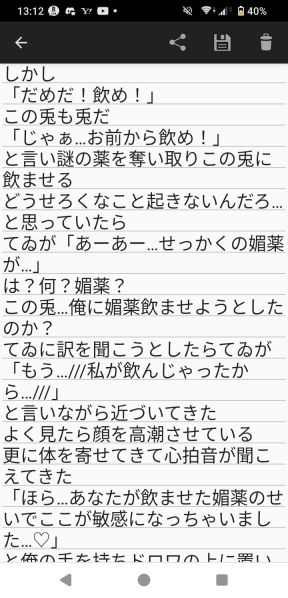 13:12
40%
しかし
「だめだ！飲め！」
この兎も兎だ
「じゃぁ...お前から飲め！」
と言い謎の薬を奪い取りこの兎に
飲ませる
どうせろくなこと起きないんだろ...
と思っていたら
てゐが「あーあー...せっかくの媚薬
が...」
は？何？媚薬？
この兎...俺に媚薬飲ませようとした
のか？
てゐに訳を聞こうとしたらてゐが
「もう...///私が飲んじゃったか
ら...///」
と言いながら近づいてきた
よく見たら顔を高潮させている
更に体を寄せてきて心拍音が聞こ
えてきた
「ほら...あなたが飲ませた媚薬のせ
いでここが敏感になっちゃいまし
た...♡」
と俺の手を持ちドロワの上に置い